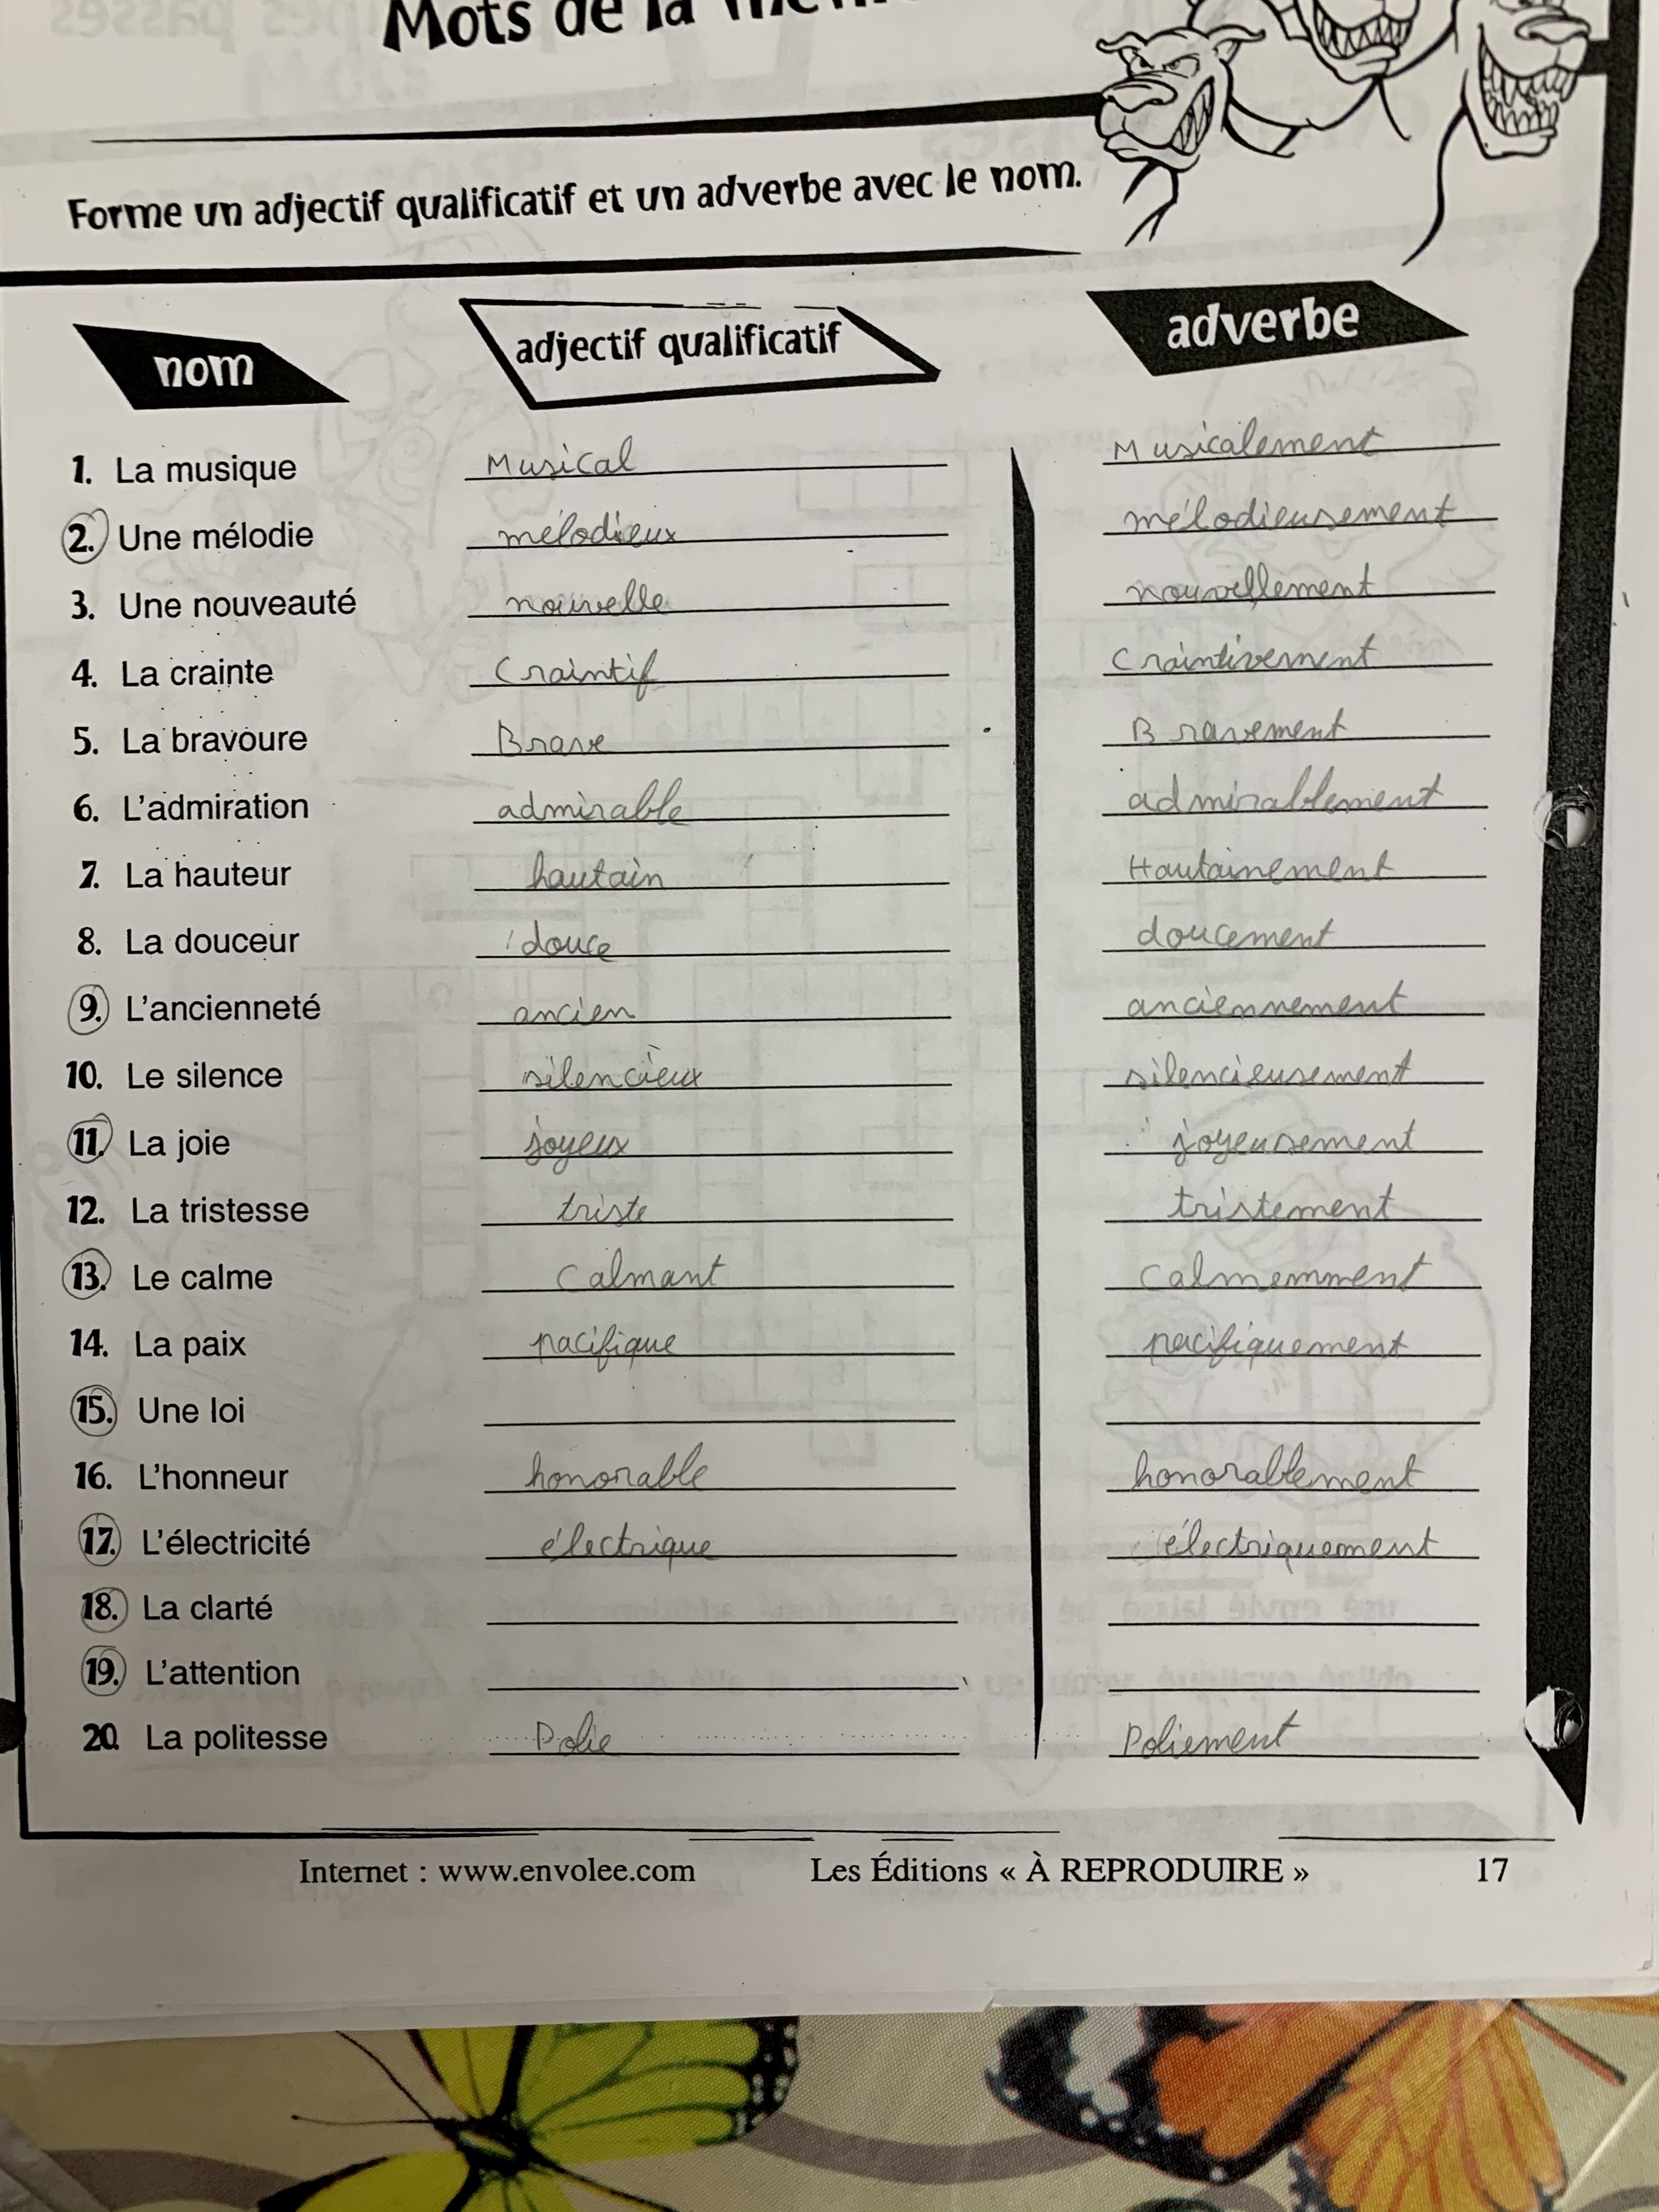 Mots de la
Forme un adjectif qualificatif et un adverbe avec le nom.
nom adjectif qualificatif adverbe
1. La musique Musical Musicalement
2. Une mélodie mélodieux mélodieusement
3. Une nouveauté nouvelle nouvellement
4. La crainte Craintif Craintivement
5. La bravoure Brave Bravement
6. L'admiration admirable admirablement
7. La hauteur hautain Hautainement
8. La douceur douce doucement
9. L'ancienneté ancien anciennement
10. Le silence silencieux silencieusement
11. La joie joyeux joyeusement
12. La tristesse triste tristement
13. Le calme Calmant Calmemment
14. La paix pacifique pacifiquement
15. Une loi
16. L'honneur honorable honorablement
17. L'électricité électrique électriquement
18. La clarté
19. L'attention
20. La politesse Polie Poliement
Internet : www.envolee.com Les Éditions « À REPRODUIRE » 17